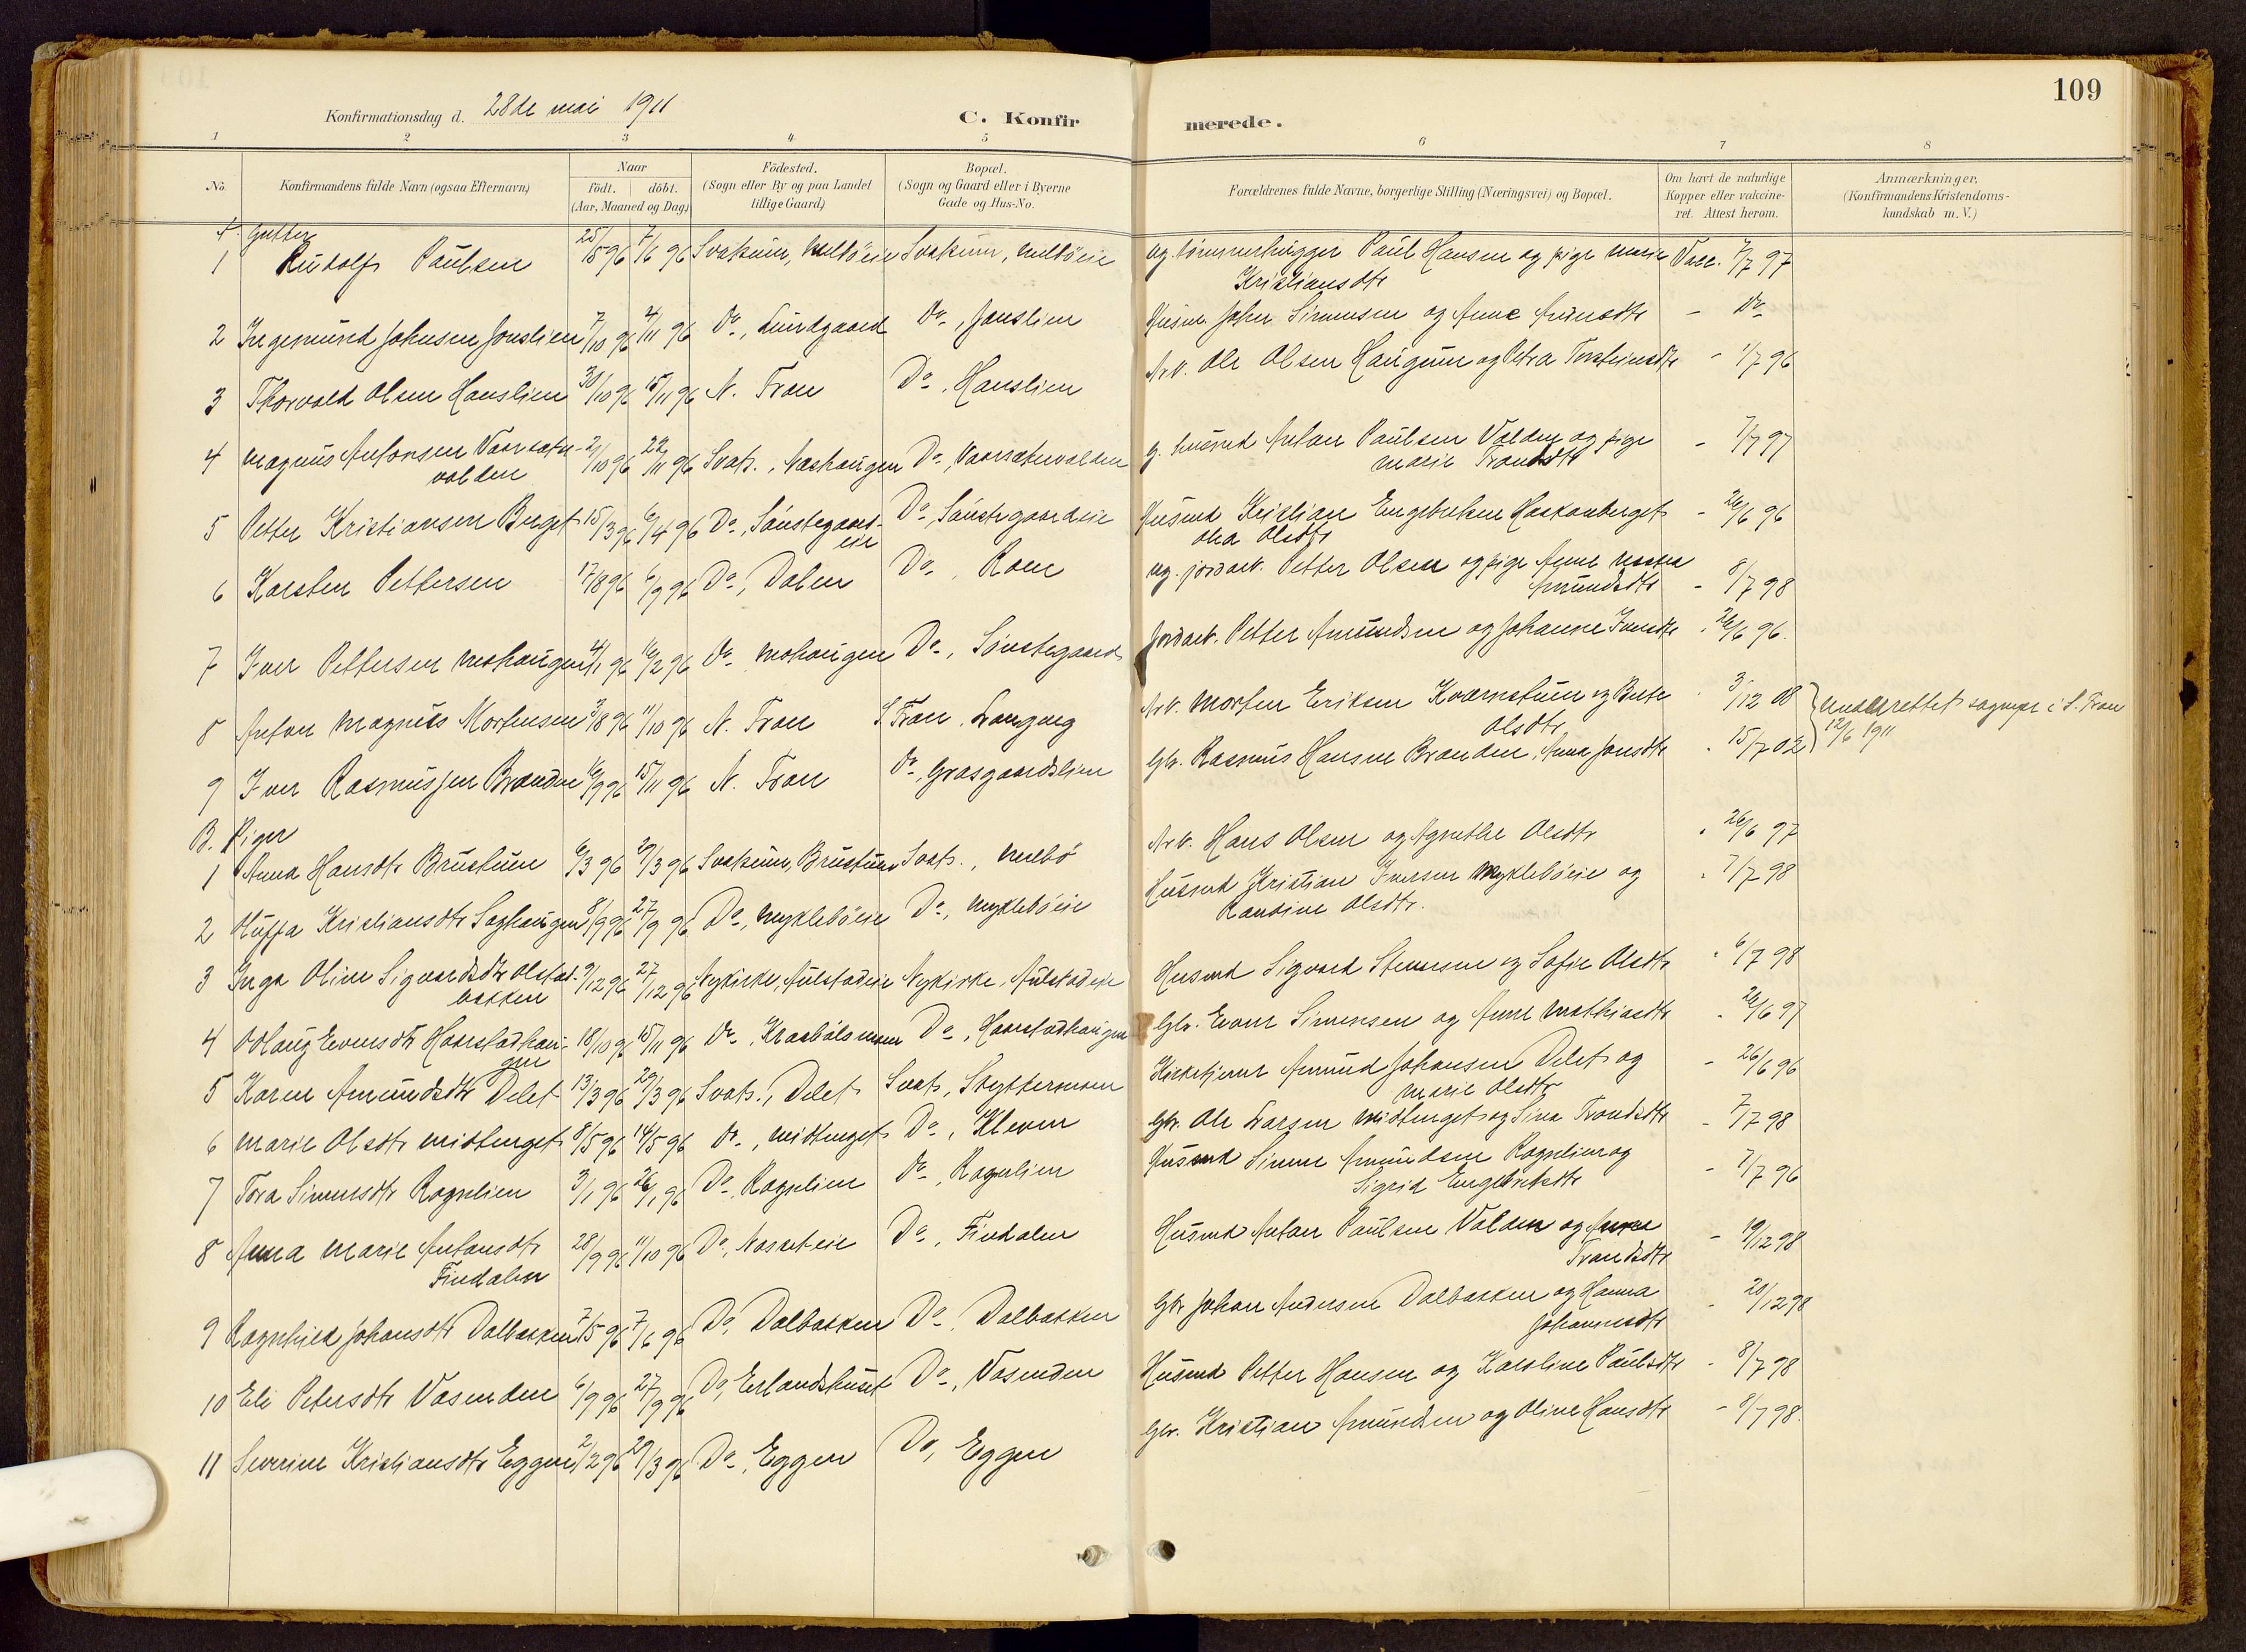 109
Konfirmationsdag d. 28de mai 1911
C. Konfirmerede.
1 2 3 4 5 6 7 8
No.
Konfirmandens fulde Navn (ogsaa Efternavn)
Naar
födt. döbt.
(Aar, Maaned og Dag)
Födested.
(Sogn eller By og paa Landet
tillige Gaard)
Bopæl.
(Sogn og Gaard eller i Byerne
Gade og Hus-No.
Forældrenes fulde Navne, borgerlige Stilling (Næringsvei) og Bopæl.
Om havt de naturlige
Kopper eller vakcine-
ret. Attest herom.
Anmærkninger,
(Konfirmandens Kristendoms-
kundskab m. V.)
Gutter
1 Rudolf Paulsen 25/5 96 7/6 96 Svatsum, Melböeie Svatsum, Melböeie ug. tömmerhugger Paul Hansen og pige Marie Kristiansdtr Vacc. 7/7 97
2 Ingemund Johnsen Jonslien 7/10 96 96 Do, Lundgaard Do, Jonslien Husm. John Simensen og Anne Amundsdtr - Do
3 Thorvald Olsen Hanslien 30/10 96 15/11 96 N. Fron Do, Hanslien Arb. Ole Olsen Haugum og Petra Torsteinsdtr - 1/7 96
4 Magnus Antonsen Vaarsæter-
volden 21/10 96 22/11 96 Svats., Næshaugen Do, Vaarsætervolden g. husmd Anton Paulsen Volden og pige Marie Trondsdtr - 7/7 97
5 Petter Kristiansen Berget 15/3 96 6/4 96 Do, Sönstegaard-
eie Do, Sönstegaardeie Husmd Kristian Engebretsen Haakonberget
Olea Olsdtr - 26/6 96
6 Karsten Pettersen 17/8 96 6/9 96 Do, Dalen Do, Roen ug. jordarb. Petter Olsen og pige Anne Marthea
Amundsdtr - 8/7 98
7 Iver Pettersen Mohaugen 4/1 96 16/2 96 Do Mohaugen Do, Sönstegaard Jordarb. Petter Amundsen og Johanne Iversdtr - 26/6 96.
8 Anton Magnus Mortensen 3/8 96 11/10 96 N. Fron S. Fron. Langeng Arb. Morten Eriksen Kværnstuen og Berte
Olsdtr - 3/12 08 Underrettet sognepr i S. Fron
12/6 1911
9 Iver Rasmussen Branden 16/9 96 15/11 96 N. Fron Do, Graagaardslien Gbr. Rasmus Hansen Branden, Anna Jonsdtr - 15/7 02
B. Piger
1 Anna Hansdtr Brustuen 6/3 96 29/3 96 Svatsum, Brustuen Svats., Melbö Arb. Hans Olsen og Agnethe Olsdtr - 26/6 97
2 Kristiansdtr Saghaugen 8/9 96 27/9 96 Do, Mykleböeie Do, Mykleböeie Husmd Kristian Iversen Mykleböeie og
Randine Olsdtr. - 7/7 98
3 Inga Oline Sigvardsdtr Olstad-
bakken 9/12 96 27/12 96 Nykirke, Aulstadeie Nykirke, Aulstadeie Husmd Sigvard Stensen og Sofie Olsdtr - 6/7 98
4 Oddlaug Evensdtr Haarstadhau-
gen 18/10 96 15/11 96 Do, Kraabölsmoen Do, Haarstadhaugen Gbr. Even Simensen og Anne Mathiasdtr - 26/6 97
5 Karen Amundsdtr Delet 13/3 96 29/3 96 Svats., Delet Svats, Skyttermoen Kirketjener Amund Johansen Delet og
Marie Olsdtr - 26/6 96
6 Marie Olsdtr Midtberget 8/5 96 14/5 96 Do, Midtberget Do, Kleven Gbr. Ole Larsen Midtberget og Sina Trondsdtr - 7/7 98
7 Tora Simensdtr Rognlien 3/1 96 26/1 96 Do, Rognlien Do, Rognlien Husmd Simen Amundsen Rognlien og
Sigrid Engebretsdtr - 7/7 96
8 Anna Marie Antonsdtr
Findalen 28/9 96 11/10 96 Do, Næsseteie Do, Findalen Husmd Anton Paulsen Volden og Anna
Trondsdtr - 19/12 98
9 Ragnhild Johansdtr Dalbakken 7/5 96 7/6 96 Do, Dalbakken Do, Dalbakken Gbr Johan Andersen Dalbakken og Hanna
Johannesdtr - 20/12 98
10 Eli Petersdtr Vasenden 6/9 96 27/9 96 Do, Erlandshuset Do, Vasenden Husmd Petter Hansen og Karoline Paulsdtr - 8/7 98
11 Severine Kristiansdtr Eggen 2/2 96 29/3 96 Do, Eggen Do, Eggen Gbr. Kristian Amundsen og Oline Hansdtr - 8/7 98.